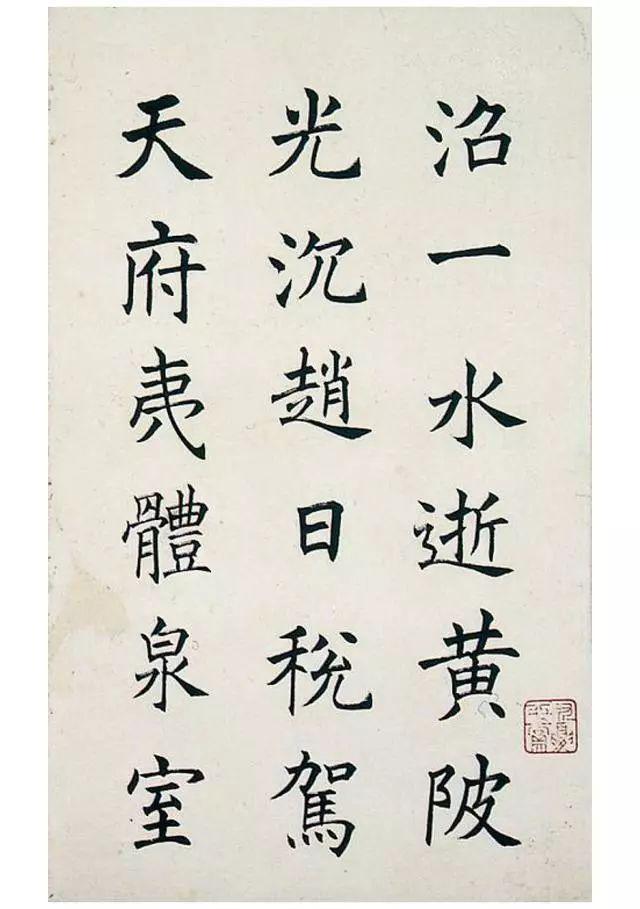 沿一水逝黄陂
光沉趙日稅駕
天府夷體泉室